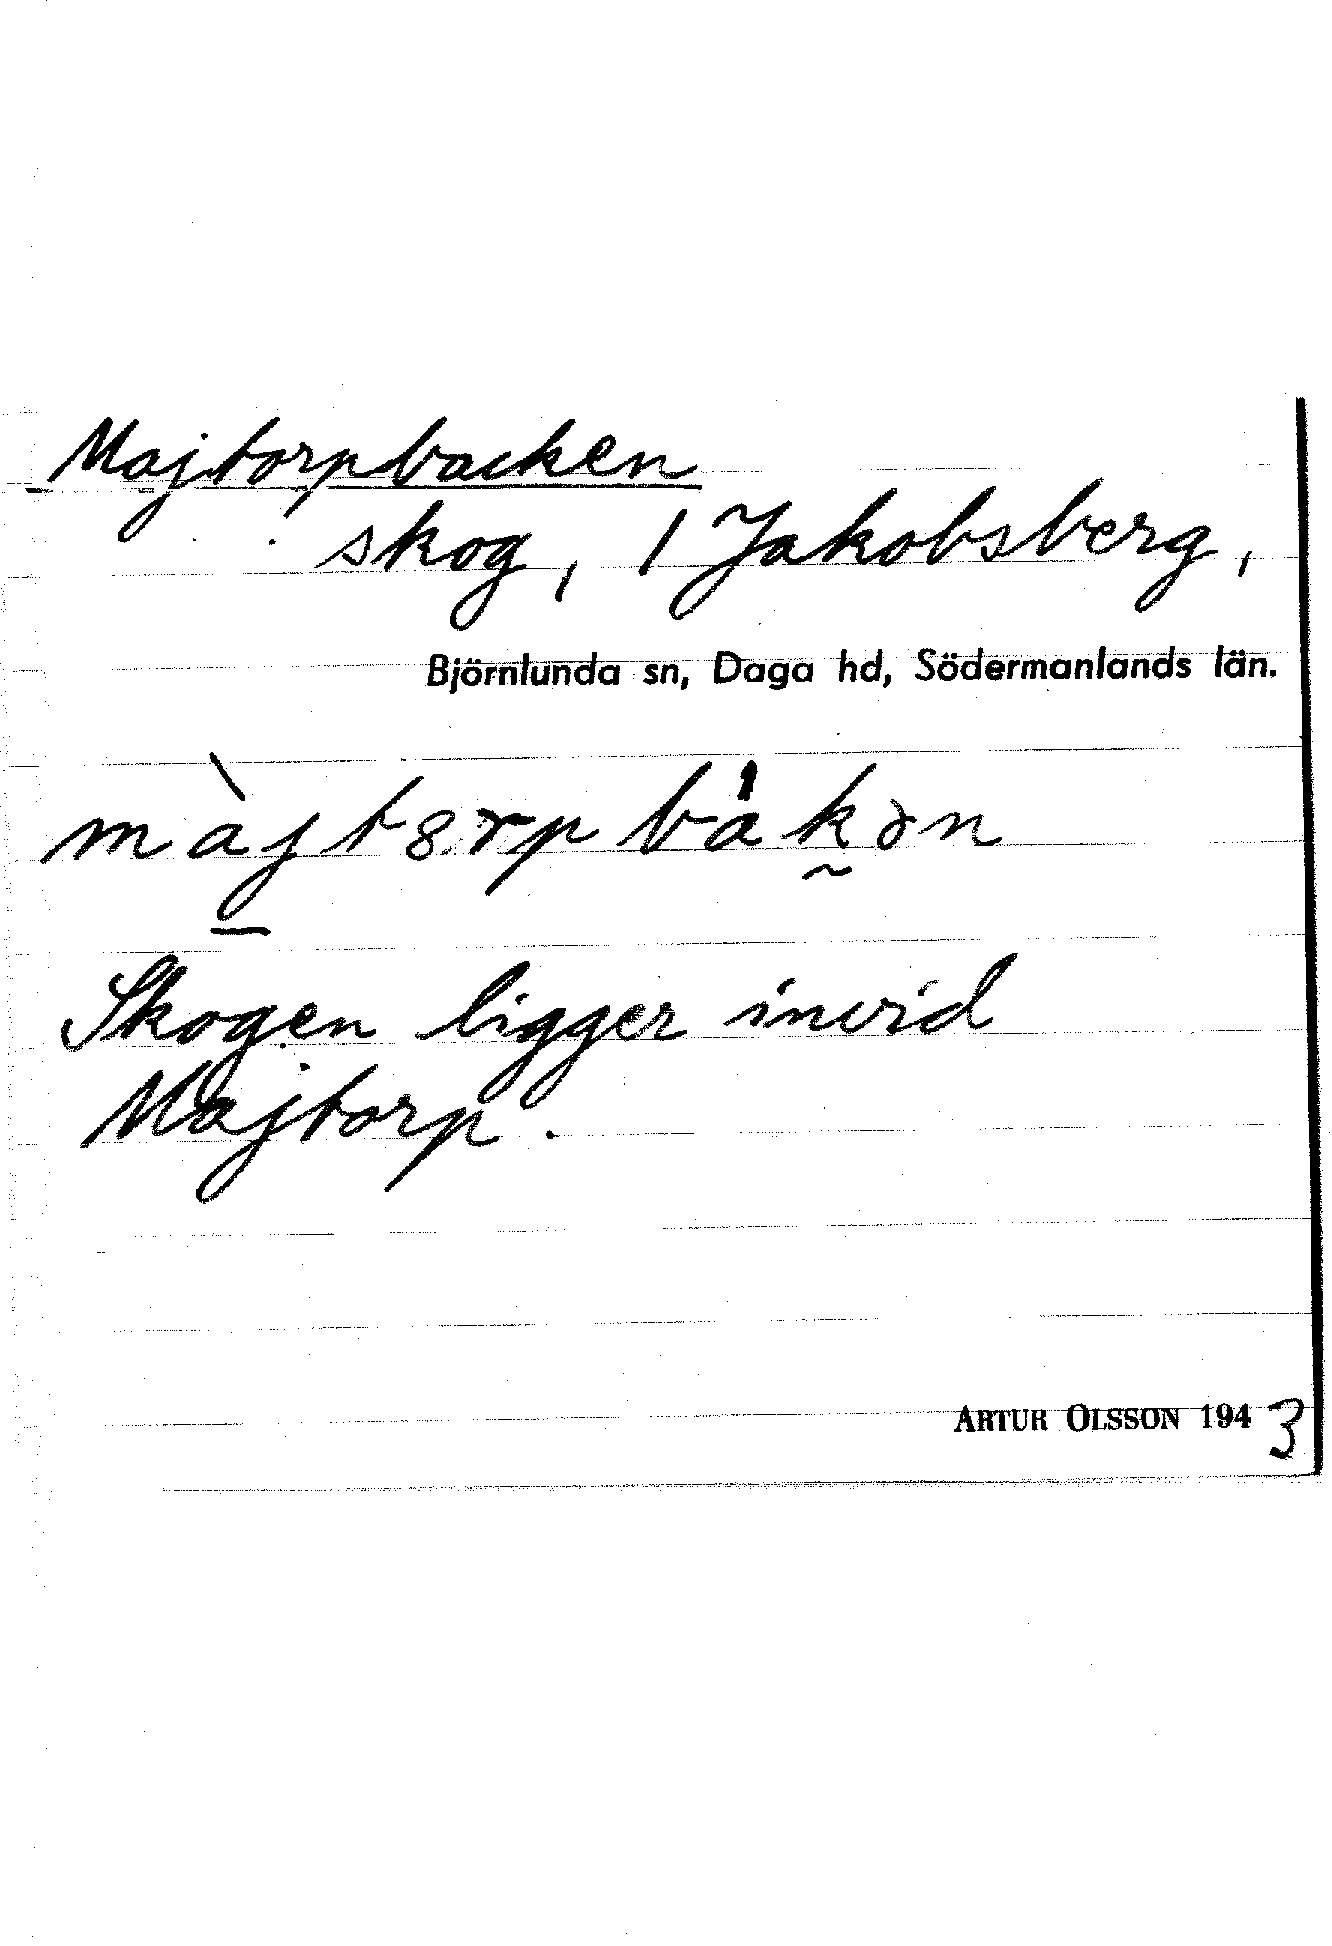 Majtorpbacken
skog, 1 Jakobsberg,
Björnlunda sn, Daga hd, Södermanlands län.
màjt8rpbák̰ən
Skogen ligger invid
Majtorp.
ARTUR OLSSON 1943